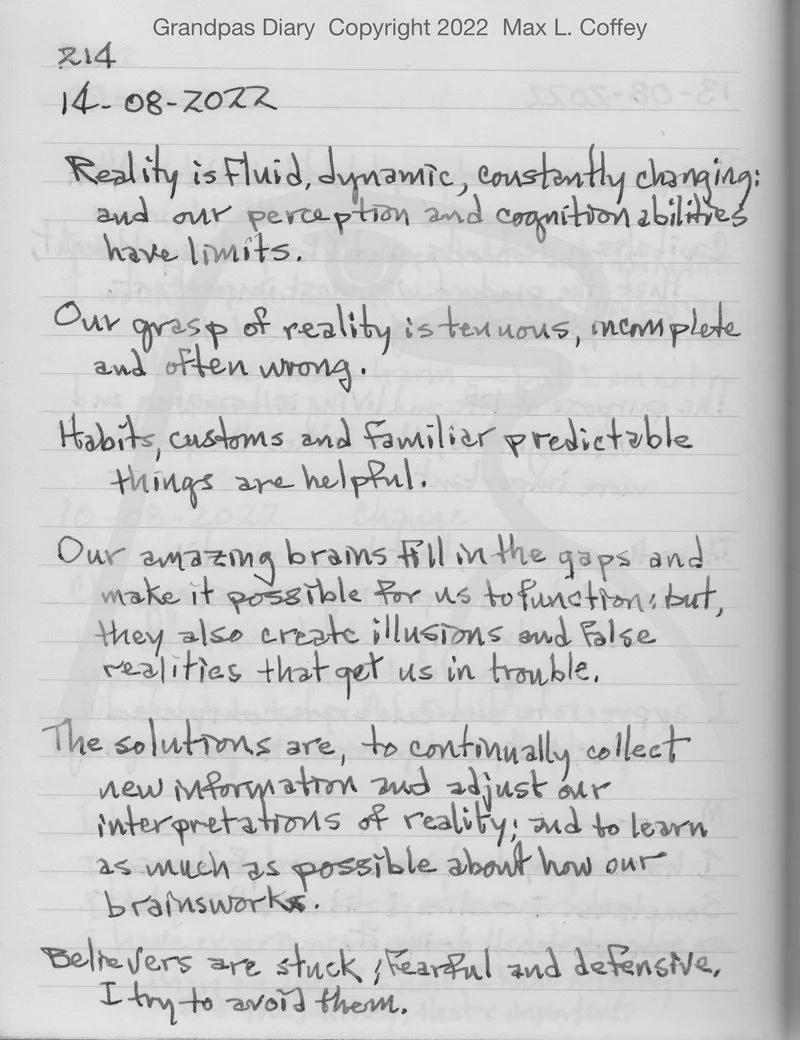 Grandpas Diary Copyright 2022 Max L. Coffey
214
14-08-2022
Reality is fluid, dynamic, constantly changing:
and our perception and cognition abilities
have limits.
Our grasp of reality is tenuous, incomplete
and often wrong.
Habits, customs and familiar predictable
things are helpful.
Our amazing brains fill in the gaps and
make it possible for us to function; but,
they also create illusions and false
realities that get us in trouble.
The solutions are, to continually collect
new information and adjust our
interpretations of reality; and to learn
as much as possible about how our
brains work.
Believers are stuck, fearful and defensive.
I try to avoid them.